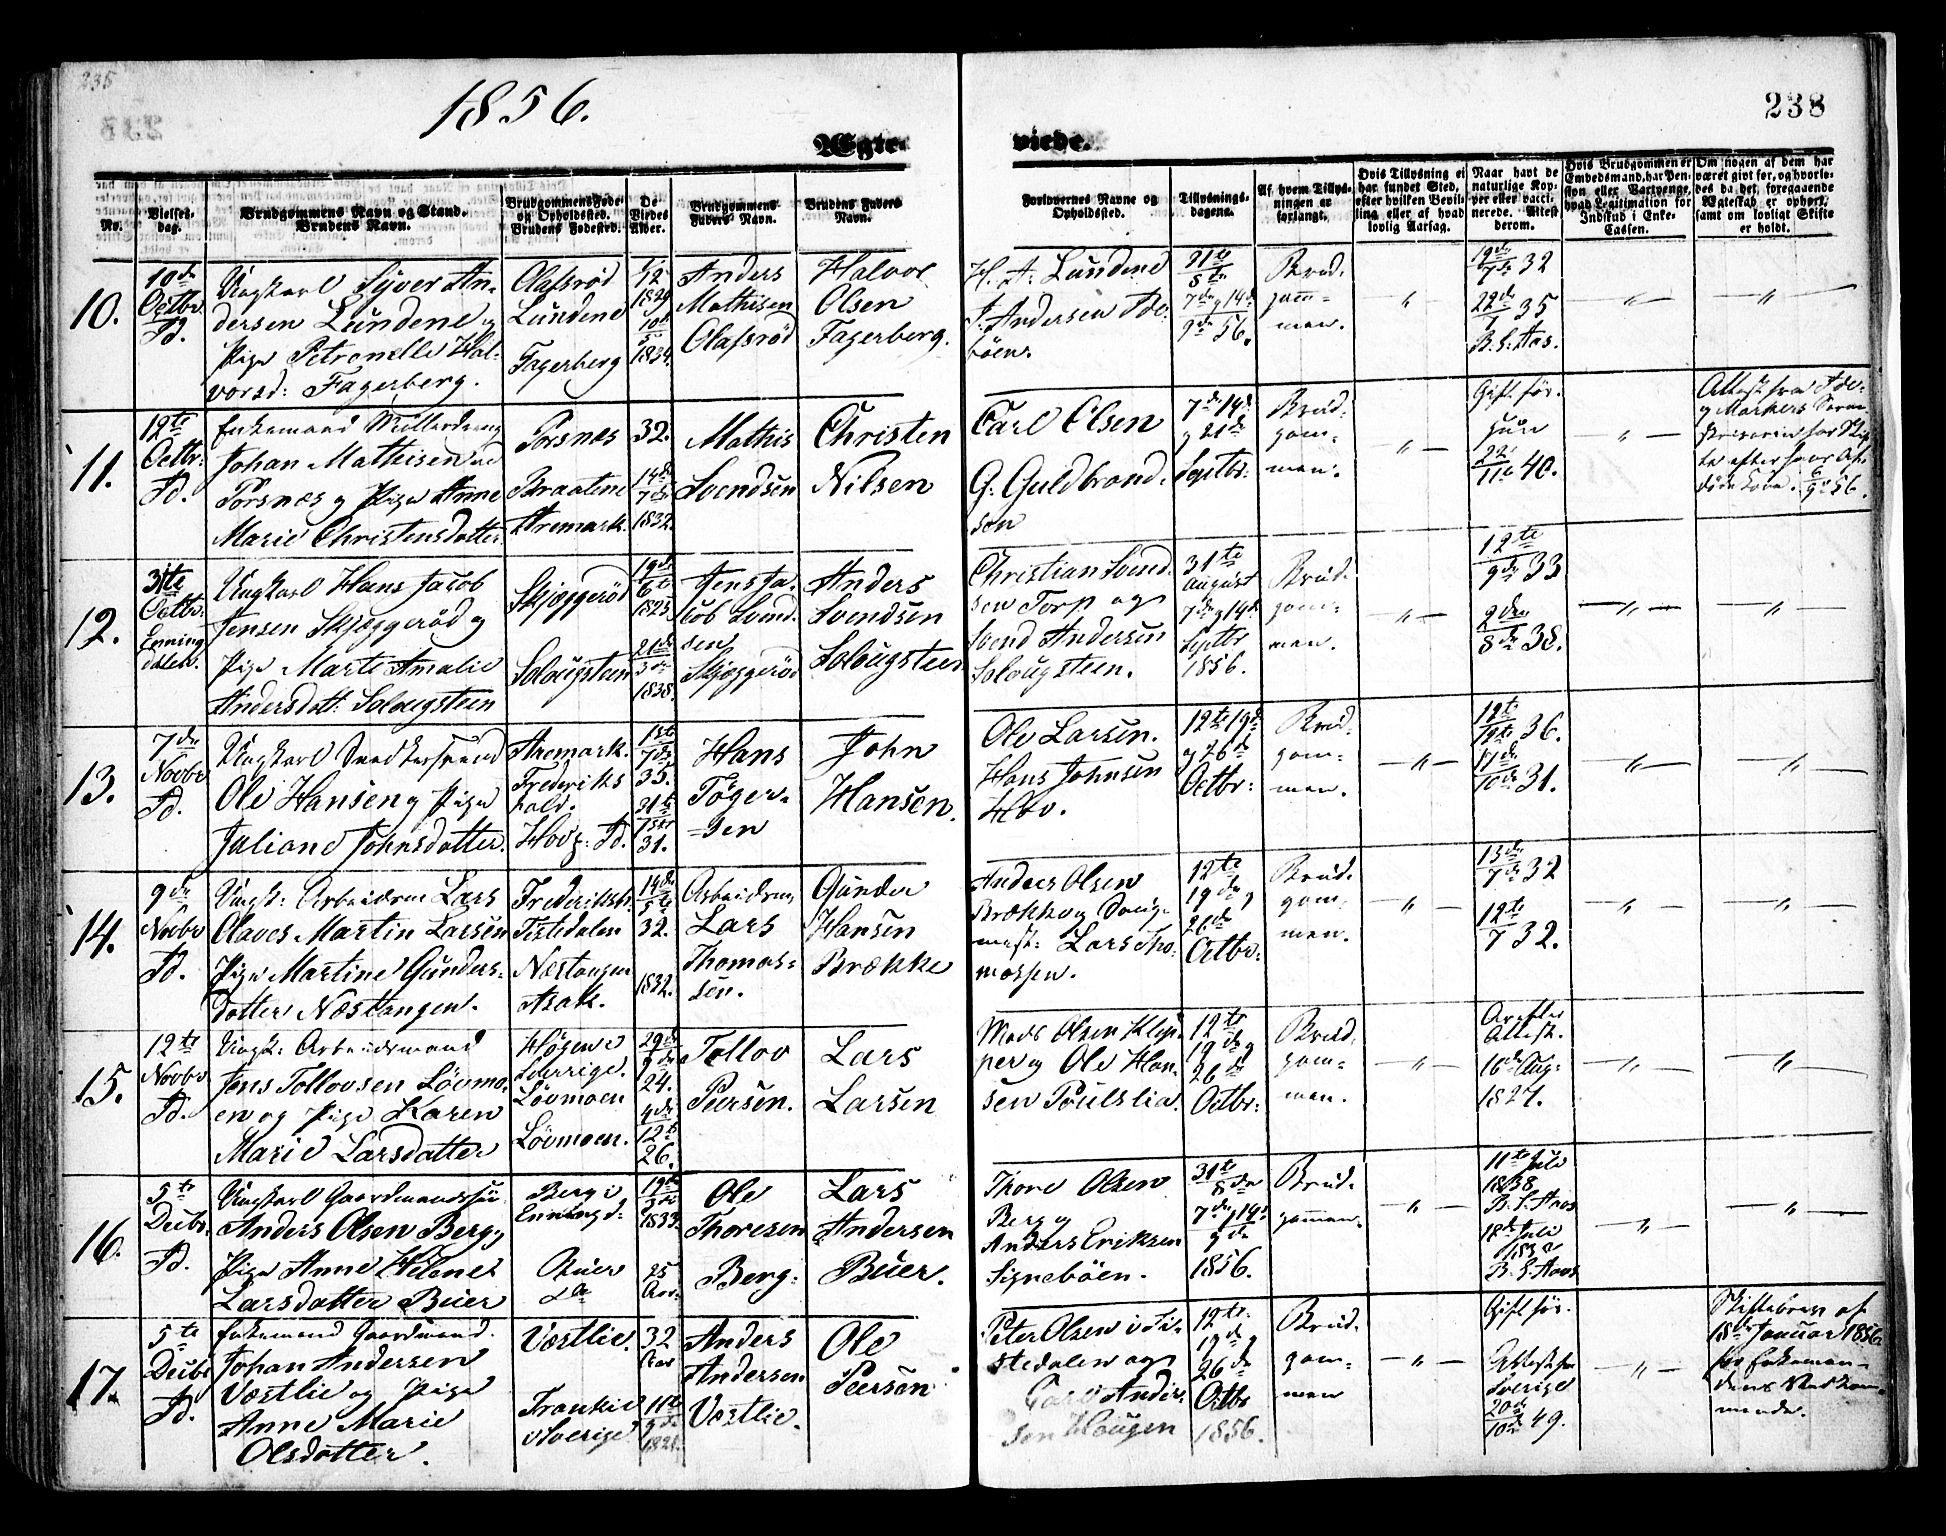 235
1856.
238
Ægte-
viede.
No.
Vielses-
dag.
Brudgommens Navn og Stand.
Brudens Navn.
Brudgommens Føde-
og Opholdssted.
Brudens Fødested.
De
Viedes
Alder.
Brudgommens
Faders Navn.
Brudens Faders
Navn.
Forlovernes Navne og
Opholdssted.
Tillysnings-
dagene.
Af hvem Tillys-
ningen er
forlangt.
Hvis Tillysning ei
har fundet Sted,
efter hvilken Bevil-
ling eller af hvad
lovlig Aarsag.
Naar havt de
naturlige Kop-
per eller vacci-
nerede. Attest
derom.
Hvis Brudgommen er
Embedsmand, har Pen-
sion eller Vartpenge,
hvad Legitimation for
Indskud i Enke-
Cassen.
Om nogen af dem har
været gift før, og hvorle-
des da det foregaaende
Ægteskab er ophørt,
samt om lovligt Skifte
er holdt.
10.
10de
Octbr.
Id.
Ungkarl Syver An-
dersen Lundene og
Pige Petronelle Hal-
vorsd: Fagerberg.
Olafsrød
Lundene
Fagerberg
1829
1834.
Anders
Mathisen
Olafsrød
Halvor
Olsen
Fagerberg.
H. A. Lundene
Andersen Ide-
böen.
7de 14de
9de 56.
Brud-
gom-
men.
"
19de/7de 32
22de/1 35
B. S. Aas.
"
"
11.
12te
Octbr:
Id.
Enkemand Møllerdreng
Johan Mathisen
Torsnæs og Pige Anne
Marie Christensdatter
Torsnæs
Braatene
Aremark.
32.
14de/7de
1832.
Mathis
Svendsen
Christen
Nilsen
Carl Olsen
G. Guldbrand-
sen
7de 14de
og 21de
Septbr:
Brud-
gom-
men.
"
Gift før.
hun
22/11 40.
"
Attest fra Ide-
og Markers Soren-
skriveren for Skif-
te efter hans Af-
døde Kone. 6/9 56.
12.
31te
Octbr.
Enning-
dalen.
Ungkarl Hans Jacob
Jensen Skjeggerød og
Pige Marte Amalie
Andersdatt: Solougsteen
Skjeggerød
Solougsteen
19de/6te
1825
21de/3de
1838.
Jens Ja-
cob Svend-
sen
Skjeggerød
Anders
Svendsen
Solougsteen
Christian Svend-
sen Torp og
Svend Andersen
Solougsteen.
31te
August
7de og 14de
Septbr
1856.
Brud-
gom-
men.
"
12te/9de 33
2den/8de 38.
"
"
13.
7de
Novbr
Id.
Ungkarl Snedkersvend
Ole Hansen og Pige
Juliane Johnsdatter.
Aremark.
Frederiks
hald.
Hov Id.
7de
35.
21te
31.
Hans
Töger-
=sen
John
Hansen.
Ole Larsen.
Hans Johnsen
Hov.
12te 19de
og 26de
Octbr:
Brud-
gom-
men.
"
12te 36.
11de/10de 31.
"
"
14.
9de
Novbr
Id.
Ungk: Arbeidsm Lars
Olaves Martin Larsen
Pige Martine Gunders-
datter Næstangen.
Frederiksh.
Tistedalen
Næstangen
Asak.
14de/5te
32.
1832.
Arbeidsm
Lars
Thomas-
sen.
Gunder
Hansen
Brække
Anders Olsen
Brække og
Lars Tho-
massen.
12te
19de og
26de
Octbr
Brud-
gom-
men.
"
13de/7de 32
12te/7 32.
"
"
15.
12te
Novbr
Id.
Ungk: Arbeidsmand
Jens Tollovsen Lövmo-
en og Pige Karen
Marie Larsdatter
Högene
Sverrige.
Lövmoen
Lövmoen.
29de
24.
4de
12te
26.
Tollov
Peersen.
Lars
Larsen
Mads Olsen Klep-
per og Ole Han-
sen Poulslia.
12te
19de og
26de
Octbr:
Brud-
gom-
men.
"
Attest.
16de Aug-
1827.
"
"
16.
5te
Decbr
Id.
Ungkarl Gaardmandssøn
Anders Olsen Berg og
Pige Anne Helene
Larsdatter Buer
Berg i
Enningd-
Buer
do
19de
1833.
25
Aar-
Ole
Thoresen
Berg:
Lars
Andersen
Buer.
Thore Olsen
Berg og
Anders Eriksen
Signeböen.
31te/8de
7de og 14de
9de
1856.
Brud-
gommen.
"
11te Juli
1838
B. S. Aas
18de Juli
B. S. Aas
"
"
17.
5te
Decbr
Id.
Enkemand Gaardmand.
Johan Andersen
Væstlie og Pige
Anne Marie
Olsdatter.
Væstlie.
Trankie
Sverige
32
Aar
11te/9de
Anders
Andersen
Væstlie.
Ole
Peersen
Peter Olsen i Ti-
stedalen og
Carl Ander-
sen Hougen
12te
19de og
26de
Octbr
1856.
Brud-
gom-
men
"
Gift før.
Attest fra
Sverige
20de/10de 49.
"
Skiftebrev af
18de Januar 1856
for Enkeman-
dens Vedkom-
mende.